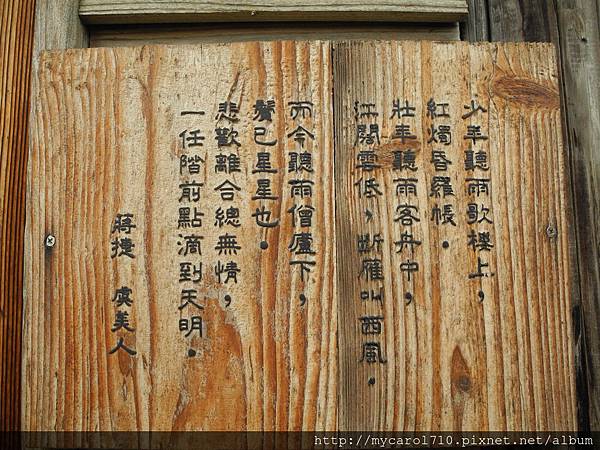 少年聽雨歌樓上，
紅燭昏羅帳。
壯年聽雨客舟中，
江闊雲低，斷雁叫西風。
而今聽雨僧廬下，
鬢已星星也。
悲歡離合總無情，
一任階前點滴到天明。
蔣捷 虞美人
http://mycarol710.pixnet.net/album